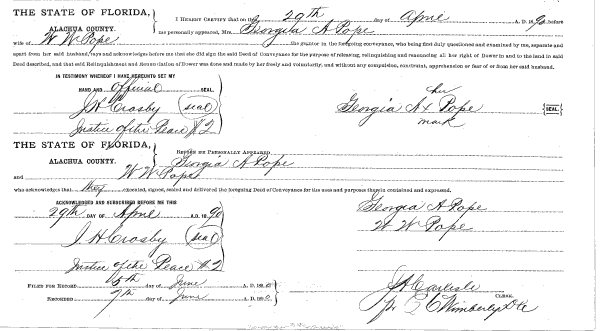 THE STATE OF FLORIDA,
ALACHUA COUNTY.
I HEREBY CERTIFY that on the 29th day of April A. D. 1890 before
me personally appeared, Mrs. Georgia A Pope
wife of W W Pope the grantor in the foregoing conveyance, who being first duly questioned and examined by me, separate and
apart from her said husband, says and acknowledges before me that she did sign the said Deed of Conveyance for the purpose of releasing, relinquishing and renouncing all her right of Dower in and to the land in said
Deed described, and that said Relinquishment and Renunciation of Dower was done and made by her freely and voluntarily, and without any compulsion, constraint, apprehension or fear of or from her said husband.
IN TESTIMONY WHEREOF I HAVE HEREUNTO SET MY
HAND AND Official SEAL.
J H Crosby (seal)
Justice of the Peace # 2
her
Georgia A x Pope {SEAL}
mark
THE STATE OF FLORIDA,
ALACHUA COUNTY.
BEFORE ME PERSONALLY APPEARED
Georgia A Pope
and W W Pope
who acknowledges that they executed, signed, sealed and delivered the foregoing Deed of Conveyance for the uses and purposes therein contained and expressed.
ACKNOWLEDGED AND SUBSCRIBED BEFORE ME THIS
29th DAY OF April A. D. 1890
J H Crosby (seal)
Justice of the Peace # 2
Georgia A Pope
W W Pope
FILED FOR RECORD 5th day of June A. D. 1890
RECORDED 7th day of June A. D. 1890
J A Carlisle
CLERK.
pr Wimberly D C